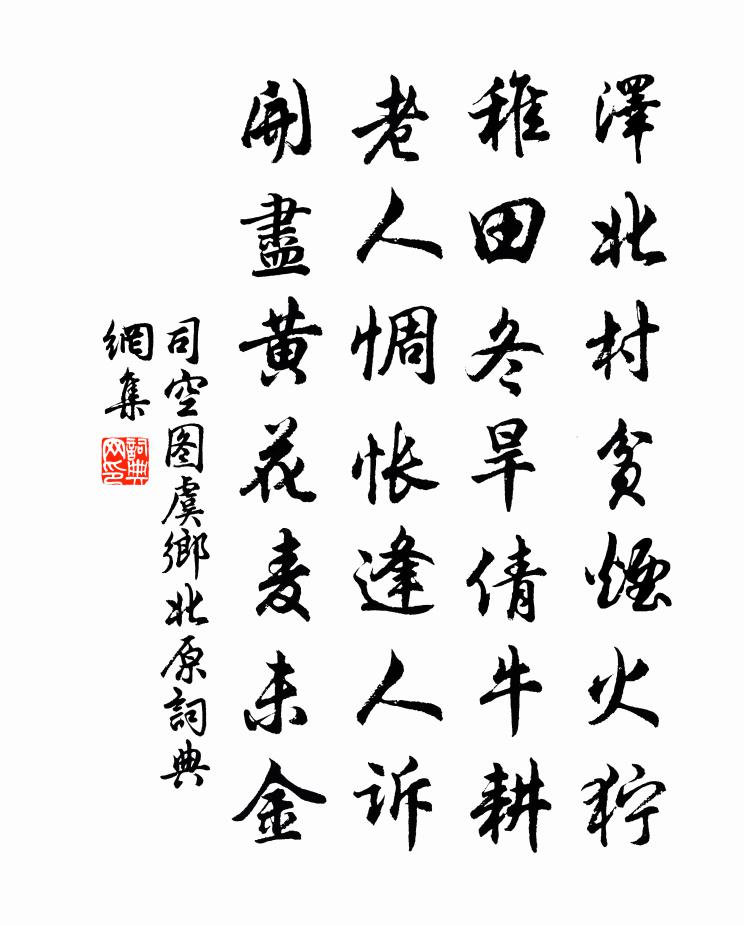 澤北村貧煙火狞
稚田冬旱倩牛耕
老人惆怅逢人诉
開盡黄花麦未金
司空图虞鄉北原詞典
網集
詞典
网印